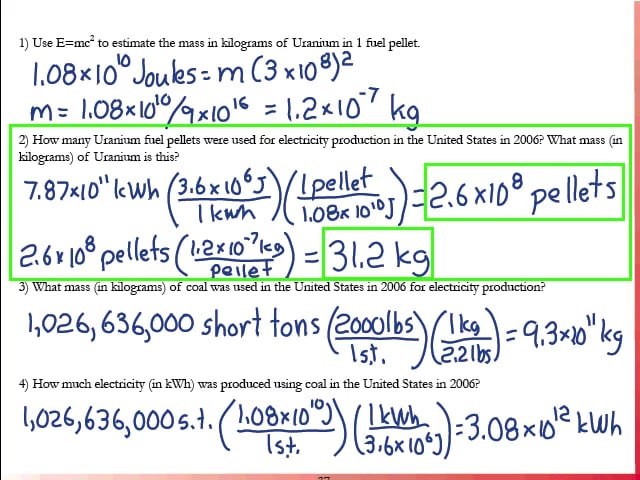 1) Use E=mc² to estimate the mass in kilograms of Uranium in 1 fuel pellet.
1.08×10¹⁰ Joules = m (3×10⁸)²
m = 1.08×10¹⁰/9×10¹⁶ = 1.2×10⁻⁷ kg
2) How many Uranium fuel pellets were used for electricity production in the United States in 2006? What mass (in
kilograms) of Uranium is this?
7.87×10¹¹ kWh (3.6×10⁶J/1 kWh)(1 pellet/1.08×10¹⁰J) = 2.6×10⁸ pellets
2.6×10⁸ pellets (1.2×10⁻⁷kg/pellet) = 31.2 kg
3) What mass (in kilograms) of coal was used in the United States in 2006 for electricity production?
1,026,636,000 short tons (2000lbs/1s.t.)(1kg/2.2lbs) = 9.3×10¹¹ kg
4) How much electricity (in kWh) was produced using coal in the United States in 2006?
1,026,636,000 s.t. (1.08×10¹⁰J/1s.t.)(1kWh/3.6×10⁶J) = 3.08×10¹² kWh